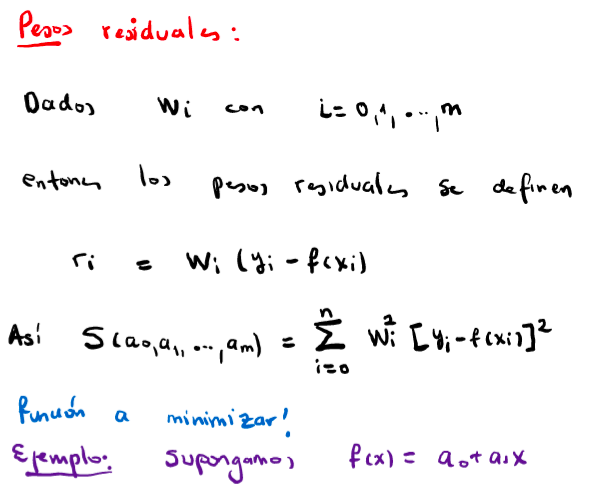 Pesos residuales:
Dados Wi con i=0,1,...,m
entonces los pesos residuales se definen
ri = Wi (yi - f(xi)
Así S(a0,a1,...,am) = n∑i=0 Wi² [yi-f(xi)]²
función a minimizar!
Ejemplo: Supongamos f(x) = a0+a1x